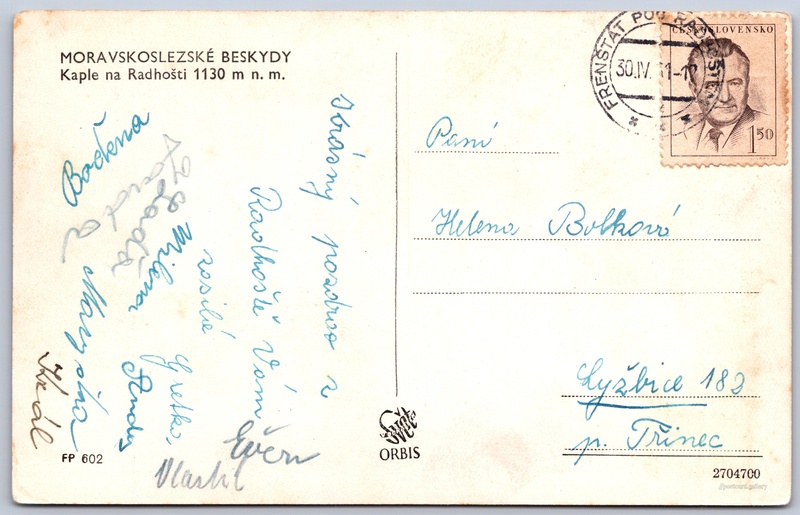 MORAVSKOSLEZSKÉ BESKYDY
Kaple na Radhošti 1130 m n. m.
Krásný pozdrav z
Radhoště Vám
zasílá
Gretka,
Božena
Jarda
Lada
Milena
Maryška
Král
Vlasta
FP 602
ORBIS
FRENŠTÁT POD RADHOŠTĚM
30.IV.51-12
ČESKOSLOVENSKO
1 50
Paní
Helena Bolková
Lyžbice 182
p. Třinec
2704700